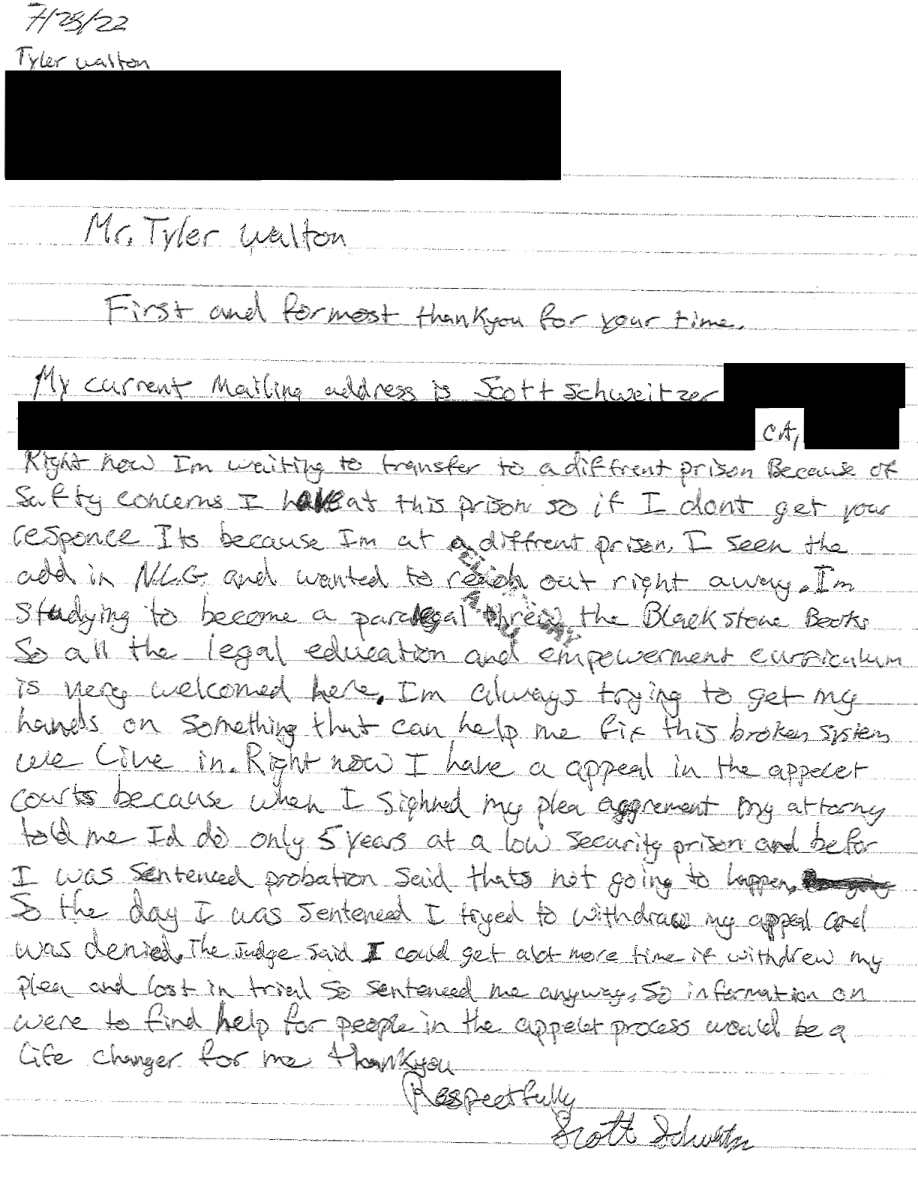 7/25/22
Tyler walton
Mr. Tyler walton
First and formost thankyou for your time.
My current Mailing address is Scott Schweitzer
CA,
Right now Im waiting to transfer to a diffrent prison Because of
Safty concerns I have at this prison so if I dont get your
responce Its because Im at a diffrent prison. I seen the
add in N.L.G. and wanted to reach out right away. Im
Studying to become a paralegal threw the Blackstone Books
So all the legal education and empowerment curriculum
is very welcomed here. Im always trying to get my
hands on something that can help me fix this broken system
we live in. Right now I have a appeal in the appelet
courts because when I sighned my plea aggrement my attorny
told me Id do only 5 years at a low security prison and befor
I was sentenced probation said thats not going to happen.
So the day I was sentenced I tryed to withdraw my appeal and
was denied. The Judge said I could get alot more time if withdrew my
plea and lost in trial so sentenced me anyway. So information on
were to find help for people in the appelet process would be a
life changer for me thankyou
Respectfully
Scott